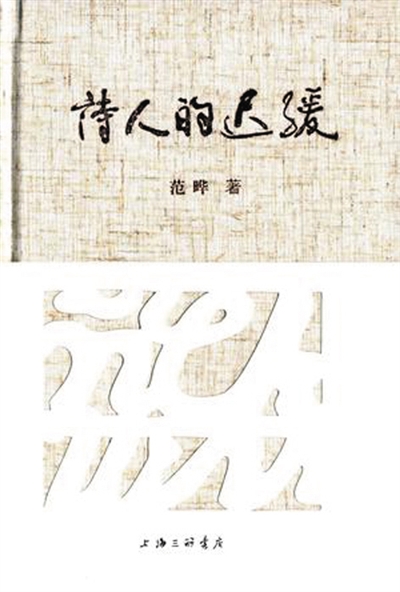 詩人的迟缓
范晔 著
上海三联书店